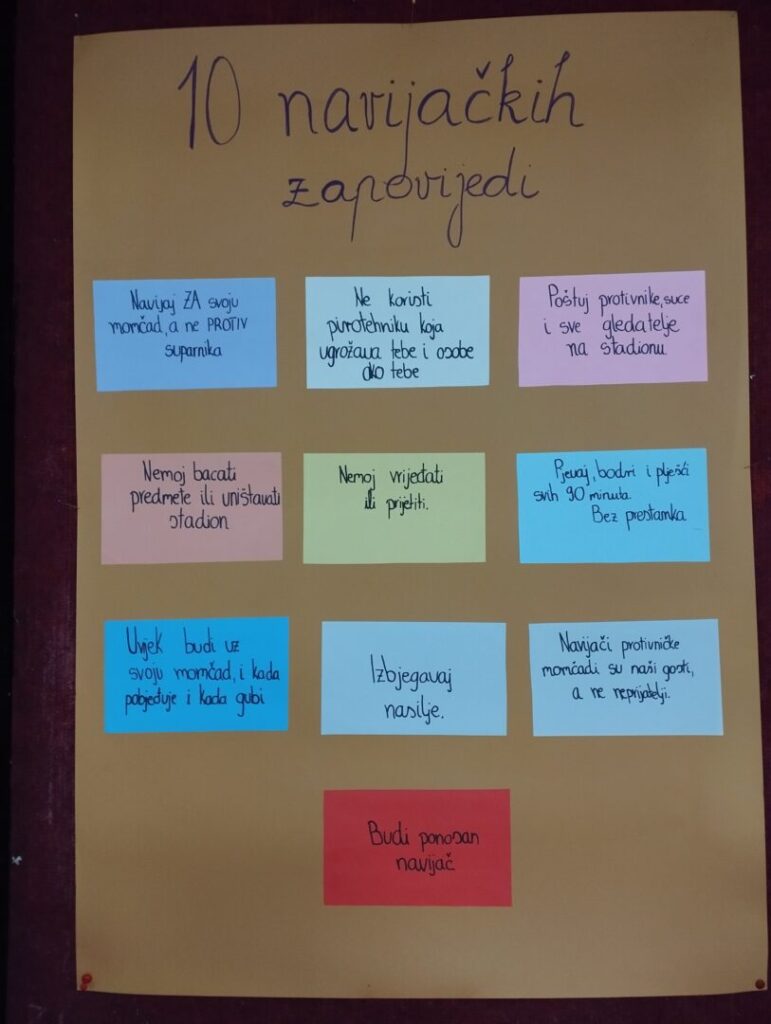 10 navijačkih
zapovijedi
Navijaj ZA svoju
momčad, a ne PROTIV
suparnika
Ne koristi
pirotehniku koja
ugrožava tebe i osobe
oko tebe
Poštuj protivnike, suce
i sve gledatelje
na stadionu
Nemoj bacati
predmete ili uništavati
stadion
Nemoj vrijeđati
ili prijetiti.
Pjevaj, bodri i plješći
svih 90 minuta.
Bez prestanka
Uvijek budi uz
svoju momčad, i kada
pobjeđuje i kada gubi
Izbjegavaj
nasilje.
Navijači protivničke
momčadi su naši gosti,
a ne neprijatelji.
Budi ponosan
navijač